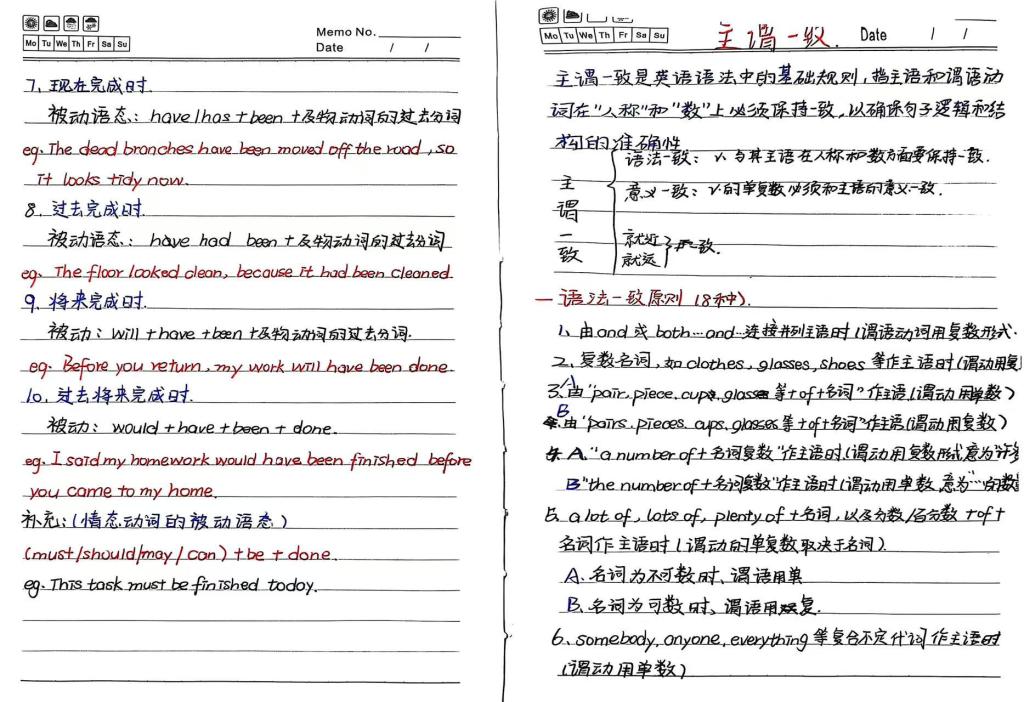 Memo No.
Mo Tu We Th Fr Sa Su
Date / /
7. 现在完成时.
被动语态: have/has + been + 及物动词的过去分词
eg. The dead branches have been moved off the road, so
it looks tidy now.
8. 过去完成时.
被动语态: have had been + 及物动词的过去分词
eg. The floor looked clean, because it had been cleaned.
9. 将来完成时.
被动: will + have + been + 及物动词的过去分词.
eg. Before you return, my work will have been done.
10. 过去将来完成时.
被动: would + have + been + done.
eg. I said my homework would have been finished before
you came to my home.
补充: (情态动词的被动语态)
(must/should/may/can) + be + done.
eg. This task must be finished today.
Mo Tu We Th Fr Sa Su
主谓一致.
Date / /
主谓一致是英语语法中的基础规则,指主语和谓语动
词在"人称"和"数"上必须保持一致,以确保句子逻辑和结
构的准确性
主谓一致
语法一致: v. 与其主语在人称和数方面要保持一致.
意义一致: v. 的单复数必须和主语的意义一致.
就近
就远
一致.
一 语法一致原则 (8种).
1. 由and 或 both...and...连接并列主语时(谓语动词用复数形式.
2. 复数名词, 如clothes, glasses, shoes 等作主语时(谓动用复
3. A. 由"pair, piece, cup, glass 等+of+名词"作主语(谓动用单数)
B. 由"pairs, pieces, cups, glasses 等+of+名词"作主语(谓动用复数)
4. A. "a number of + 名词复数"作主语时,(谓动用复数形式,意为"许多
B "the number of + 名词复数"作主语时(谓动用单数,意为"…的数量
5. a lot of, lots of, plenty of + 名词, 以及分数/百分数 + of +
名词作主语时(谓动的单复数取决于名词).
A. 名词为不可数时、谓语用单
B. 名词为可数时、谓语用复.
6. somebody, anyone, everything 等复合不定代词作主语时
(谓动用单数)